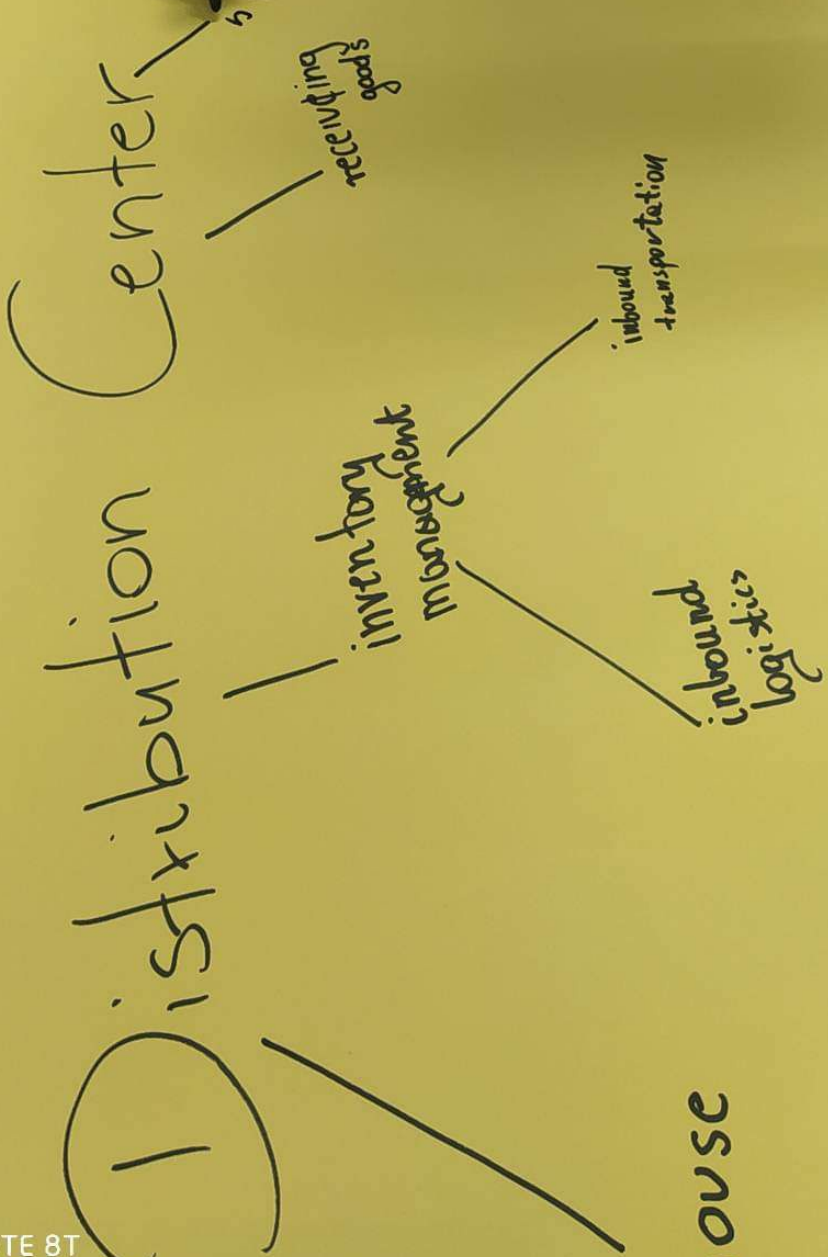 Distribution Center
receiving
goods
inventory
management
inbound
transportation
inbound
logistics
ouse
TE 8T